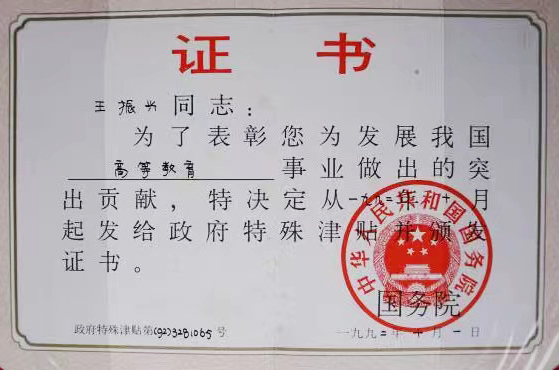 证书
王振兴同志：
为了表彰您为发展我国
高等教育事业做出的突
出贡献，特决定从一九九二年十月
起发给政府特殊津贴并颁发
证书。
中华人民共和国国务院
国务院
政府特殊津贴第(92)3281065号
一九九二年十月一日